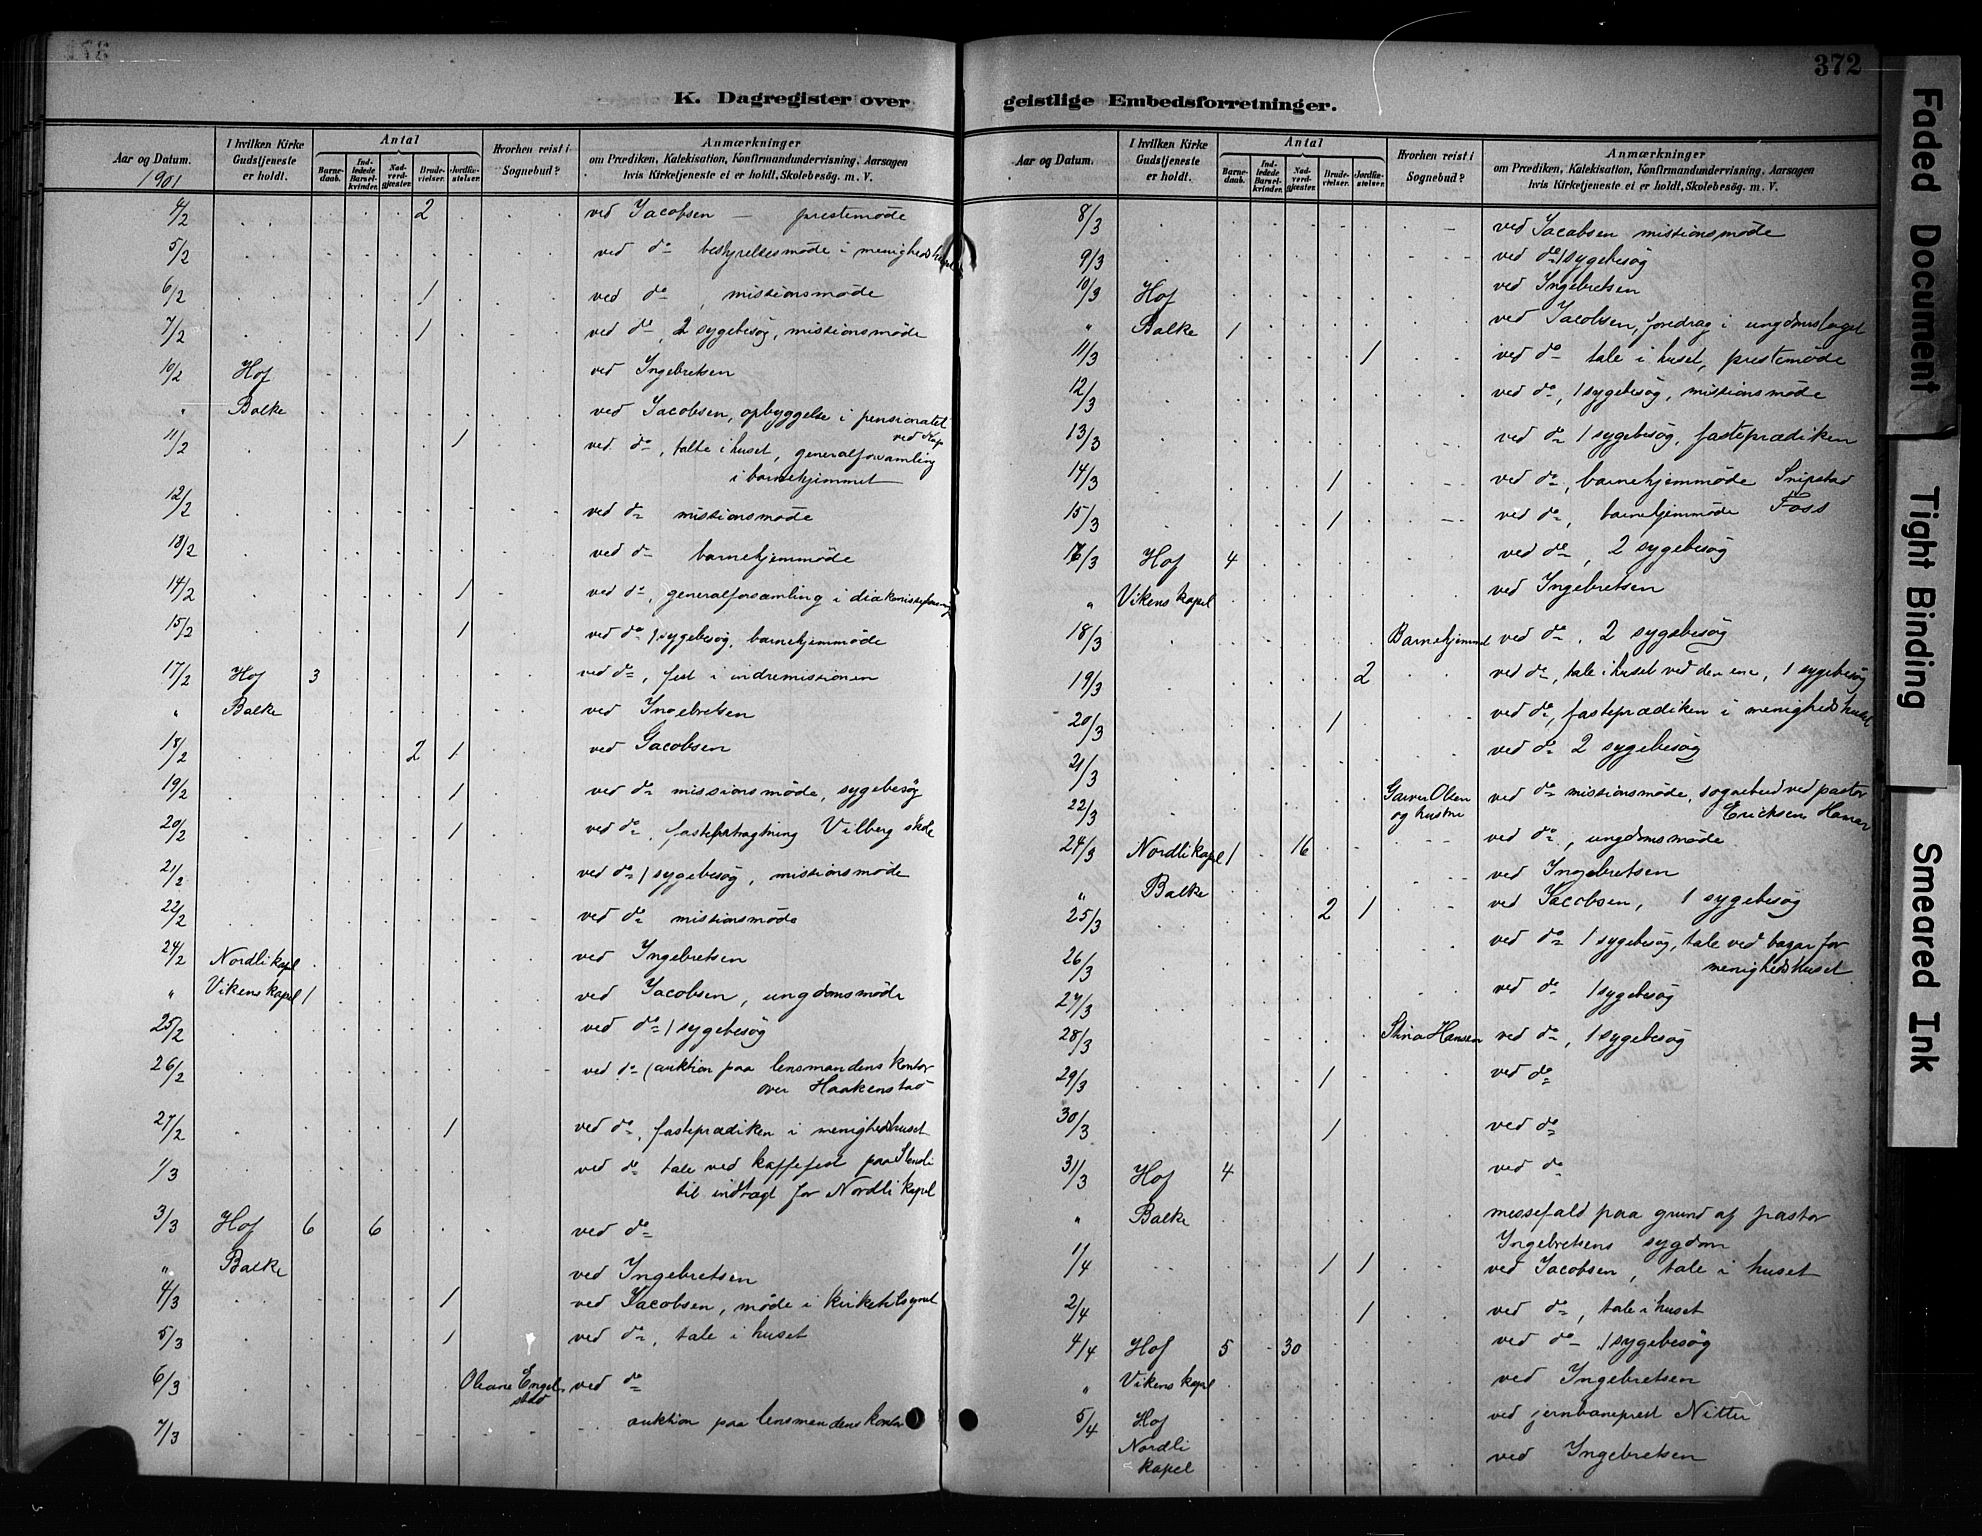 372
K. Dagregister over geistlige Embedsforretninger.
Aar og Datum.
1901
I hvilken Kirke Gudstjeneste er holdt.
Antal
Barne-daab.
Ind-ledede Barsel-kvinder.
Nad-verd-gjester.
Brude-vielser.
Jordfæ-stelser.
Hvorhen reist i Sognebud?
Anmærkninger
om Prædiken, Katekisation, Konfirmandundervisning, Aarsagen
hvis Kirketjeneste ei er holdt, Skolebesøg. m. V.
4/2 2 ved Jacobsen — prestemøde
5/2 ved do bestyrelsesmøde i menighedshuset
6/2 1 ved do, missionsmøde
7/2 1 ved do, 2 sygebesøg, missionsmøde
10/2 Hof ved Ingebretsen
" Balke ved Jacobsen, opbyggelse i pensionatet
ved Kap
11/2 1 ved do, talte i huset, generalforsamling
i barnehjemmet
12/2 ved do missionsmøde
13/2 ved do barnehjemmøde
14/2 1 ved do, generalforsamling i
15/2 1 ved do 1 sygebesøg, barnehjemmøde
17/2 Hof 3 ved do, fest i indremissionen
" Balke ved Ingebretsen
18/2 2 1 ved Jacobsen
19/2 1 ved do missionsmøde, sygebesøg
20/2 1 ved do, Vilberg skole
21/2 ved do 1 sygebesøg, missionsmøde
22/2 ved do missionsmøde
24/2 Nordli kapel ved Ingebretsen
" Vikens kapel 1 ved Jacobsen, ungdomsmøde
25/2 ved do 1 sygebesøg
26/2 ved do (auktion paa lensmandens kontor
over Haakenstad
27/2 1 ved do, fasteprædiken i menighedshuset
1/3 ved do tale ved kaffefest paa
til indtægt for Nordli kapel
3/3 Hof 6 6 ved do
" Balke ved Ingebretsen
4/3 1 ved Jacobsen, møde i kirketilsynet
5/3 1 ved do, tale i huset
6/3 Oleane Engel-
stad ved do
7/3 auktion paa lensmandens kontor
Aar og Datum.
I hvilken Kirke Gudstjeneste er holdt.
Antal
Barne-daab.
Ind-ledede Barsel-kvinder.
Nad-verd-gjester.
Brude-vielser.
Jordfæ-stelser.
Hvorhen reist i Sognebud?
Anmærkninger
om Prædiken, Katekisation, Konfirmandundervisning, Aarsagen
hvis Kirketjeneste ei er holdt, Skolebesøg. m. V.
8/3 ved Jacobsen missionsmøde
9/3 ved do 1 sygebesøg
10/3 Hof ved Ingebretsen
" Balke 1 ved Jacobsen, foredrag i ungdomslaget
11/3 1 ved do tale i huset, prestemøde
12/3 ved do, 1 sygebesøg, missionsmøde
13/3 ved do 1 sygebesøg, fasteprædiken
14/3 1 ved do, barnehjemmøde Snipstad
15/3 1 ved do, barnehjemmøde Foss
16/3 Hof 4 ved do, 2 sygebesøg
" Vikens kapel ved Ingebretsen
18/3 Barnehjemmet ved do, 2 sygebesøg
19/3 2 ved do, tale i huset ved den ene, 1 sygebesøg
20/3 1 ved do, fasteprædiken i menighedshuset
21/3 ved do 2 sygebesøg
22/3 Garver Olsen
og hustru ved do missionsmøde, sognebud ved pastor
Ericksen
24/3 Nordli kapel 1 16 ved do, ungdomsmøde
" Balke ved Ingebretsen
25/3 2 1 ved Jacobsen, 1 sygebesøg
26/3 ved do 1 sygebesøg, tale ved bazar for
menighedshuset
27/3 ved do 1 sygebesøg
28/3 Stina Hansen ved do, 1 sygebesøg
29/3 1 ved do
30/3 1 ved do
31/3 Hof 4 ved do
" Balke messefald paa grund af pastor
Ingebretsens sygdom
1/4 1 1 ved Jacobsen, tale i huset
2/4 1 ved do, tale i huset
4/4 Hof 5 30 ved do 1 sygebesøg
" Vikens kapel ved Ingebretsen
5/4 Hof ved jernbaneprest Nitter
Nordli
kapel ved Ingebretsen
Faded Document
Tight Binding
Smeared Ink